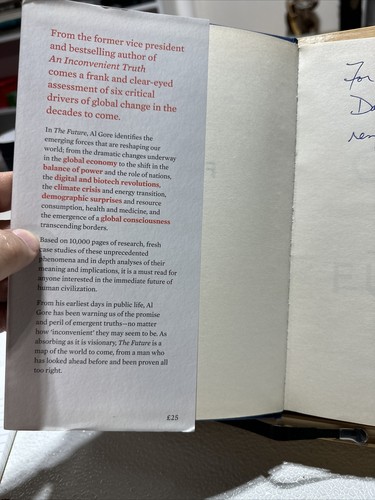 From the former vice president
and bestselling author of
An Inconvenient Truth
comes a frank and clear-eyed
assessment of six critical
drivers of global change in the
decades to come.
In The Future, Al Gore identifies the
emerging forces that are reshaping our
world; from the dramatic changes underway
in the global economy to the shift in the
balance of power and the role of nations,
the digital and biotech revolutions,
the climate crisis and energy transition,
demographic surprises and resource
consumption, health and medicine, and
the emergence of a global consciousness
transcending borders.
Based on 10,000 pages of research, fresh
case studies of these unprecedented
phenomena and in depth analyses of their
meaning and implications, it is a must read for
anyone interested in the immediate future of
human civilization.
From his earliest days in public life, Al
Gore has been warning us of the promise
and peril of emergent truths—no matter
how 'inconvenient' they may seem to be. As
absorbing as it is visionary, The Future is a
map of the world to come, from a man who
has looked ahead before and been proven all
too right.
£25
For